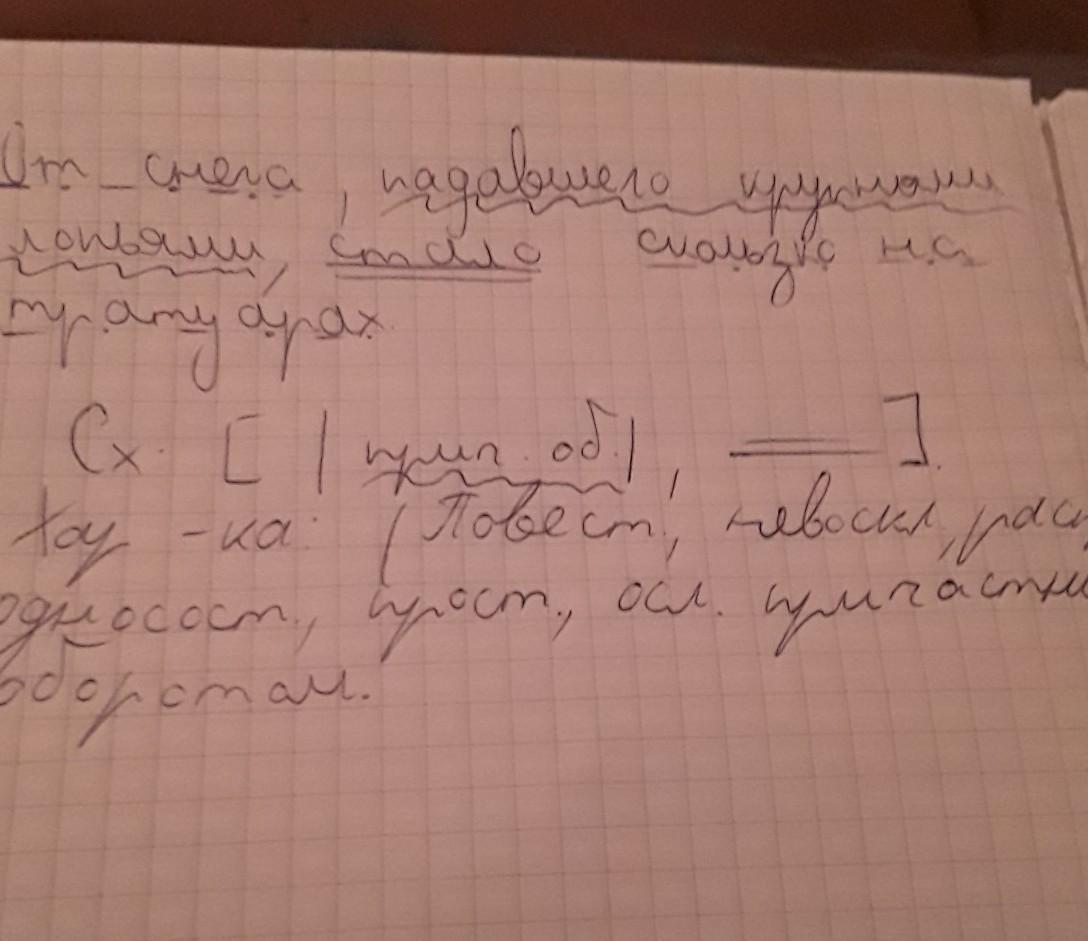 От снега, падавшего крупными
лопьями, стало скользко на
тратуарах.
Сх. [ | прич. об. |, ═ ].
Хар-ка: (Повест., невоскл, рас
односост., прост., осл. причастны
оборотам.